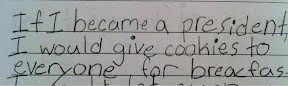 If I became a president,
I would give cookies to
everyone for breacfas